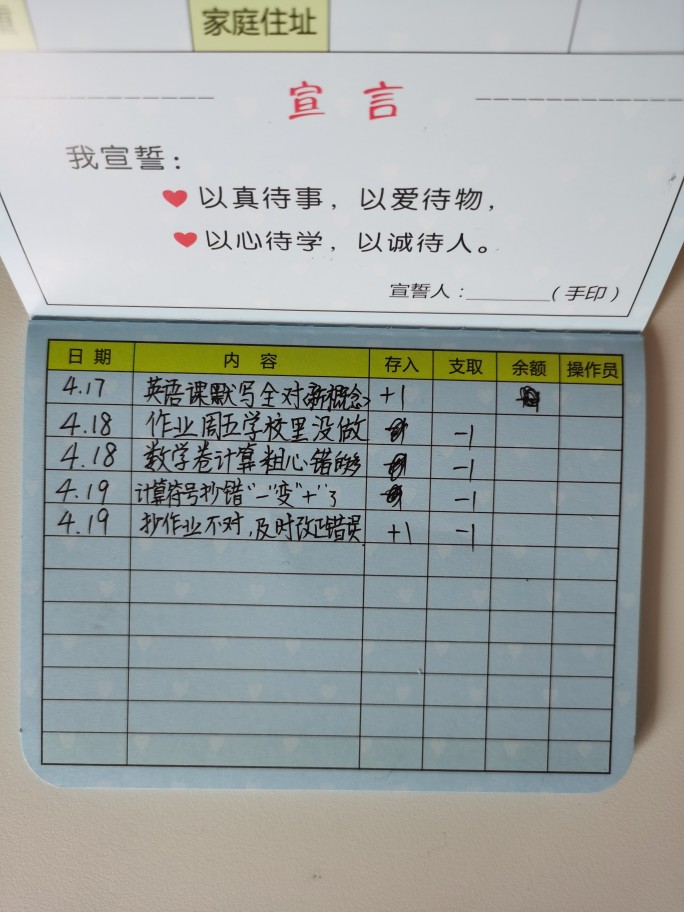 家庭住址
宣言
我宣誓：
以真待事，以爱待物，
以心待学，以诚待人。
宣誓人：________（手印）
日期 内容 存入 支取 余额 操作员
4.17 英语课默写全对<新概念> +1
4.18 作业周五学校里没做 -1
4.18 数学卷计算粗心错的多 -1
4.19 计算符号抄错"一"变"+"了 -1
4.19 抄作业不对，及时改正错误 +1 -1